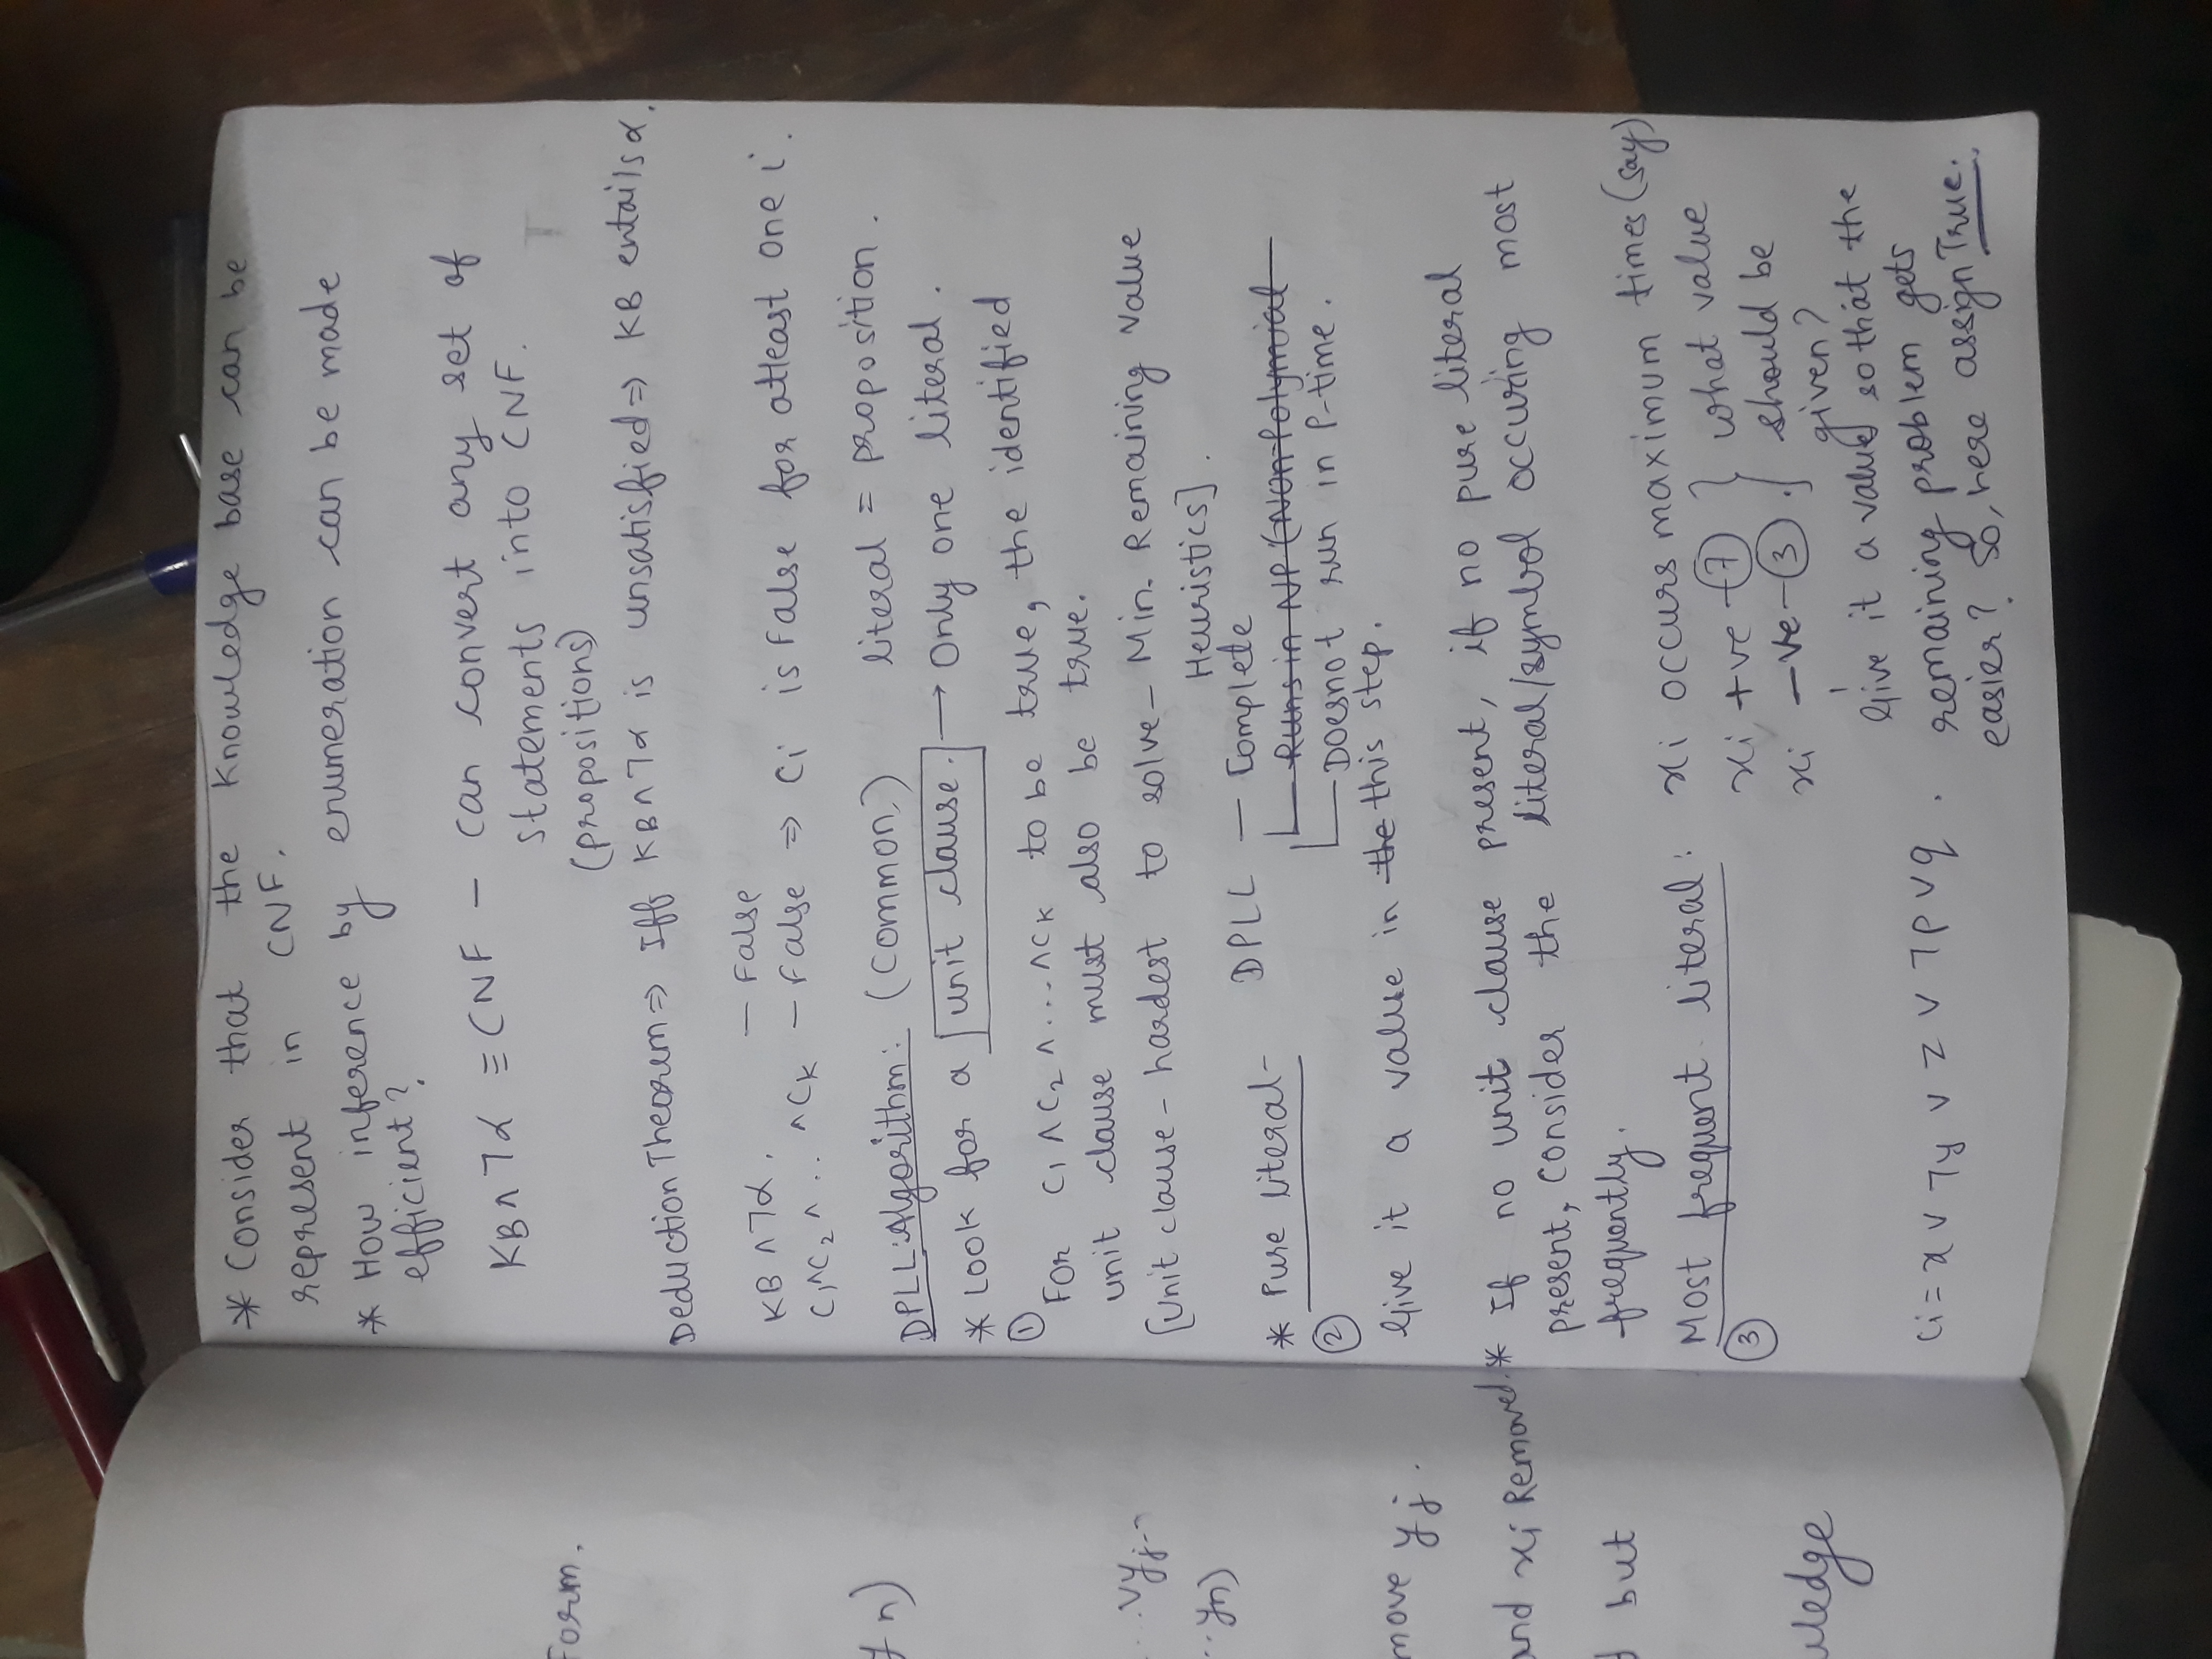 Form.
y n)
...Vyj-1
...yn)
move yj.
and xi Removed.
but
wledge
* Consider that the Knowledge base can be
represent in CNF.
* How inference by enumeration can be made
efficient?
KB ∧ ¬α ≡ CNF - can convert any set of
statements into CNF.
(propositions)
Deduction Theorem ⇒ Iff KB ∧ ¬α is unsatisfied ⇒ KB entails α.
KB ∧ ¬α, - False
C1 ∧ C2 ∧ .. ∧ CK - False ⇒ Ci is False for atleast one i.
DPLL Algorithm: (Common?) literal = proposition.
* Look for a unit clause. → Only one literal.
① For C1 ∧ C2 ∧ .... ∧ CK to be true, the identified
unit clause must also be true.
[Unit clause - hardest to solve - Min. Remaining value
Heuristics].
* Pure literal - DPLL - Complete
② Runs in NP (Non-Polynomial
Doesnot run in P-time.
Give it a value in the this step.
* If no unit clause present, if no pure literal
present, consider the literal/symbol occuring most
frequently.
Most frequent literal: xi occurs maximum times (say)
③ xi +ve - 7 } what value
xi -ve - 3. } should be
given?
Give it a value so that the
Ci = x ∨ ¬y ∨ z ∨ ¬p ∨ q. remaining problem gets
easier? So, here assign True.